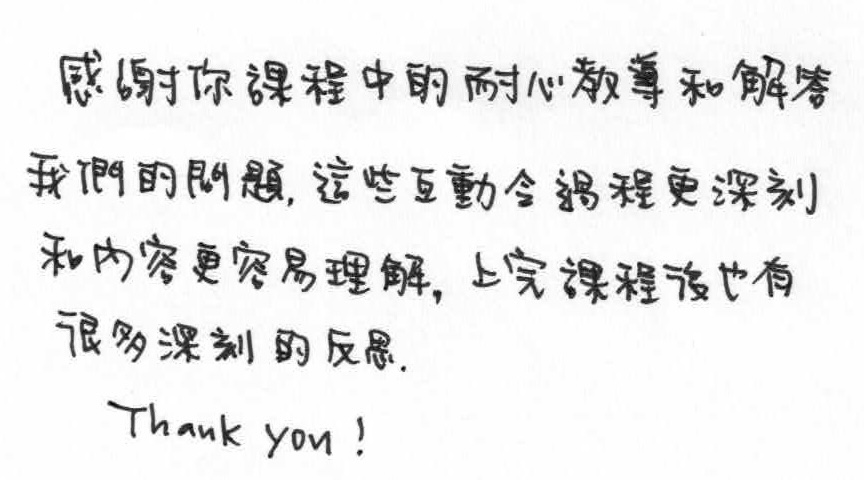 感謝你課程中的耐心教導和解答
我們的問題, 這些互動令過程更深刻
和內容更容易理解, 上完課程後也有
很多深刻的反思.
Thank you!